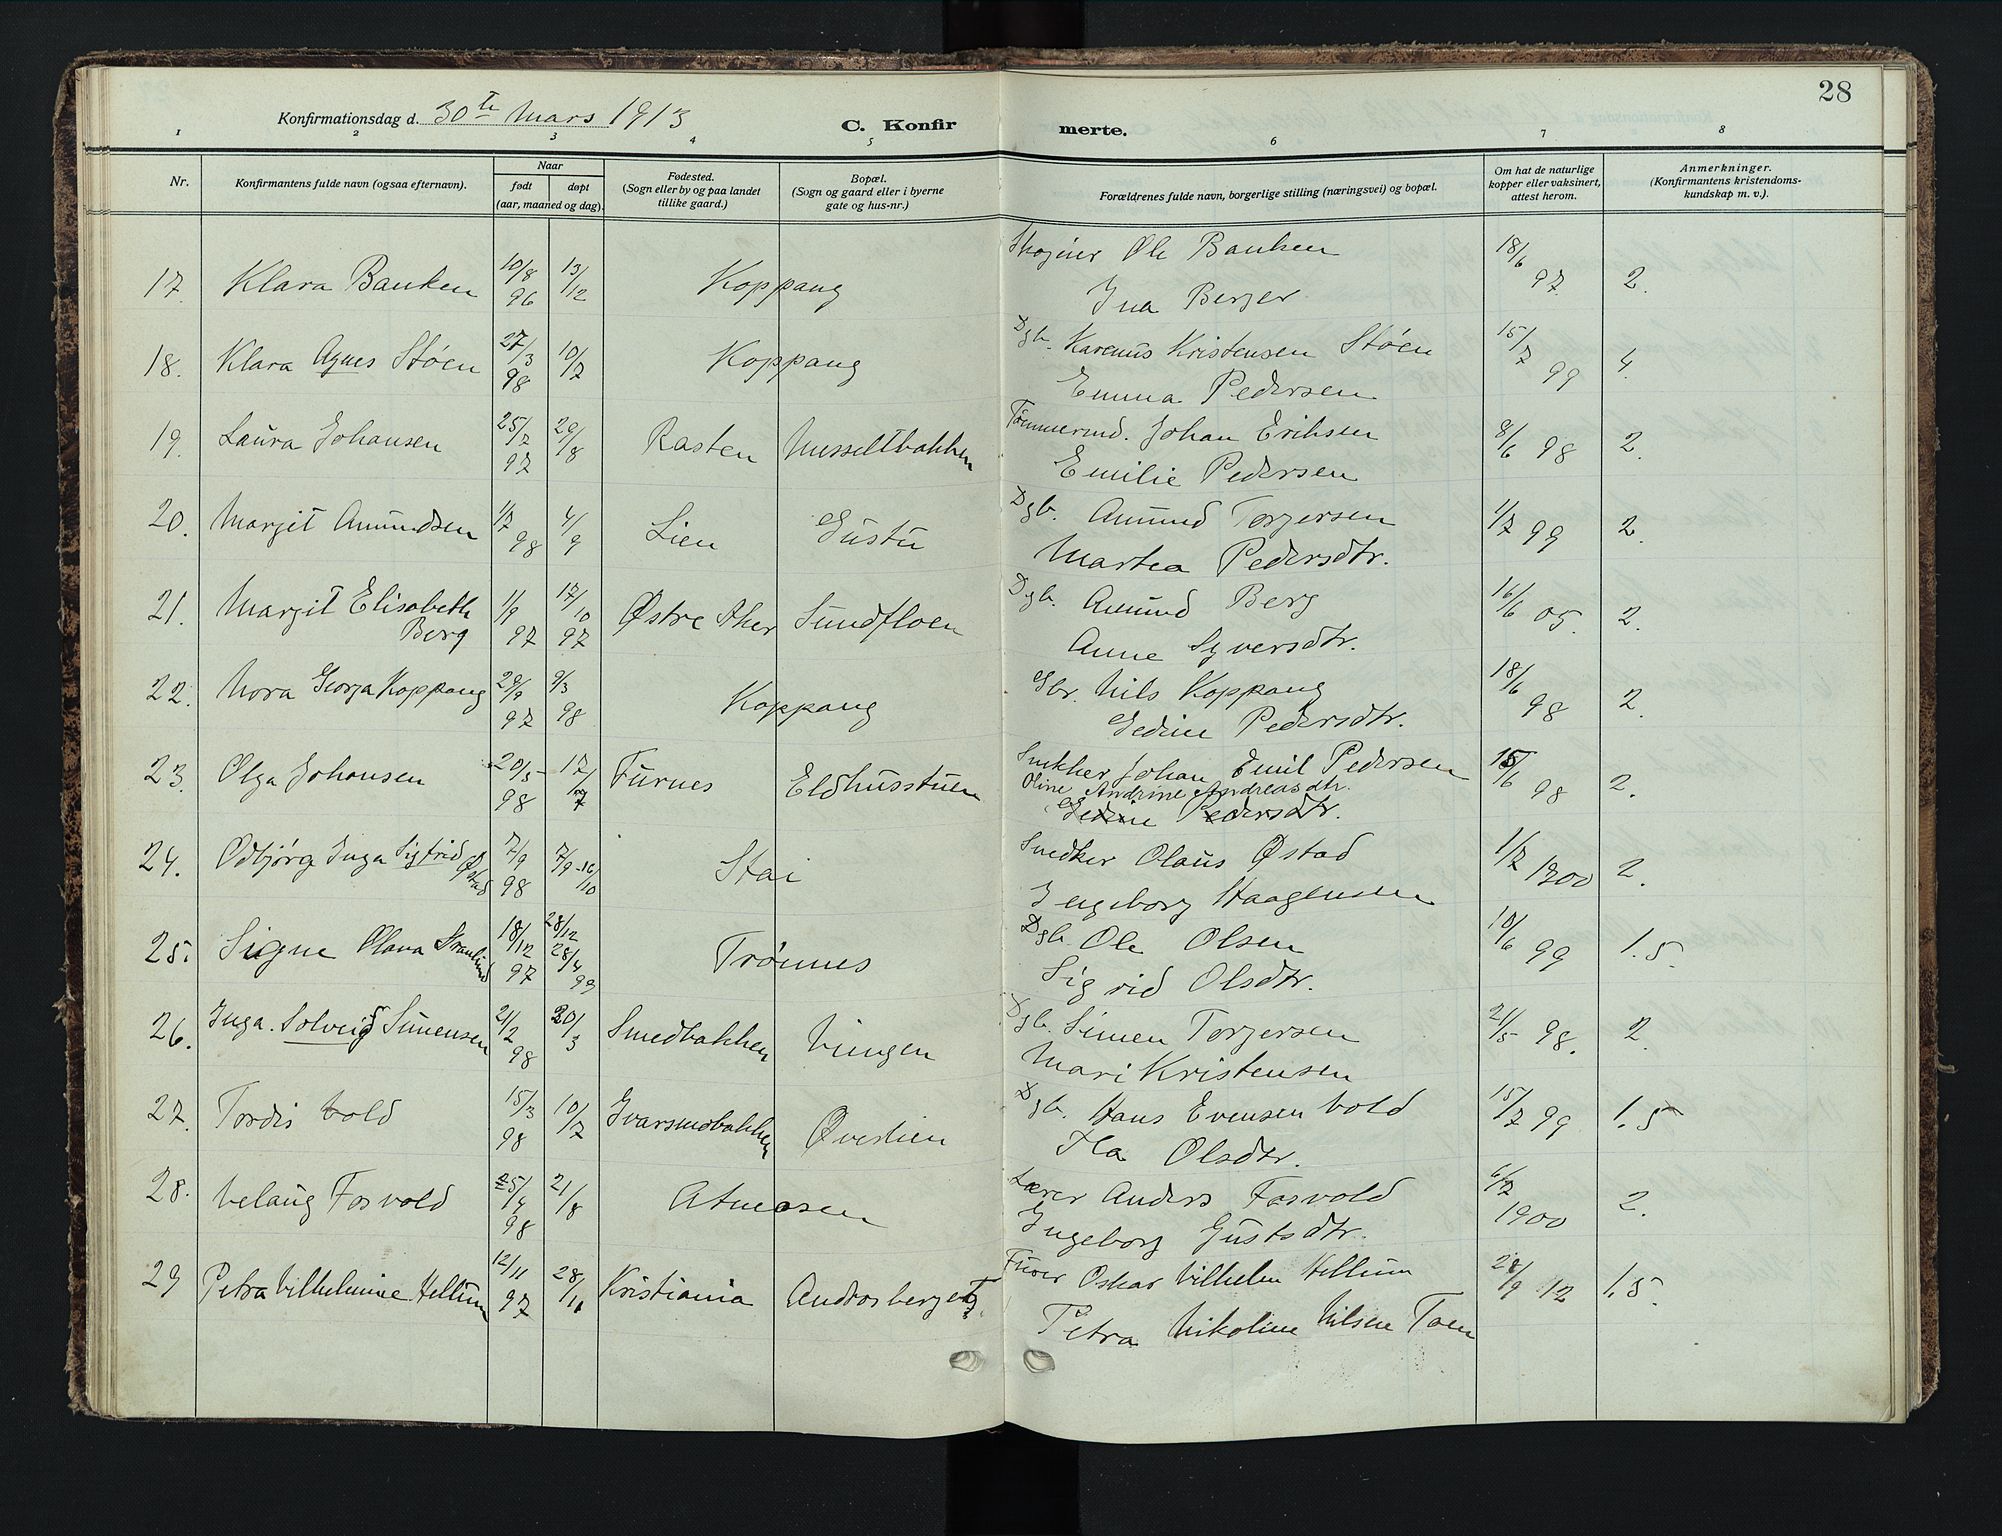 28
Konfirmationsdag d. 30te Mars 1913
C. Konfirmerte.
1 2 3 4 5 6 7 8
Nr.
Konfirmantens fulde navn (ogsaa efternavn).
Naar
født døpt
(aar, maaned og dag).
Fødested.
(Sogn eller by og paa landet
tillike gaard.)
Bopæl.
(Sogn og gaard eller i byerne
gate og hus-nr.)
Forældrenes fulde navn, borgerlige stilling (næringsvei) og bopæl.
Om hat de naturlige
kopper eller vaksinert,
attest herom.
Anmerkninger.
(Konfirmantens kristendoms-
kundskap m. v.).
17. Klara Banken 10/8 96 13/12 Koppang Skogeier Ole Banken 18/6 97. 2.
Ina Berger
18. Klara Agnes Støen 27/3 98 10/7 Koppang Dgb. Karenus Kristensen Støen 15/7 99 4.
Emma Pedersen
19. Laura Johansen 25/7 97 29/8 Rasten Messeltbakken Tømmermd. Johan Eriksen 8/6 98 2.
Emilie Pedersen
20. Margit Amundsen 1/7 98 4/9 Lien Gustu Dgb. Amund Torgersen 1/7 99 2.
Martea Pedersdtr.
21. Margit Elisabeth 1/9 97 17/10 97 Østre Aker Sundfloen Dgb. Amund Berg 16/6 05. 2.
Berg
Anne Syversdtr.
22. Nora Georga Koppang 29/9 97 9/3 98 Koppang Gbr. Nils Koppang 18/6 98 2.
Gedine Pedersdtr.
23. Olga Johansen 20/5 98 17/7 Furnes Eldhusstuen Snekker Johan Emil Pedersen 15/6 98 2.
Oline Andrine Andreasdtr.
Gedine Pedersdtr.
24. Odbjørg Inga Sigfrid Østad 7/9 98 7/9-16/10 Stai Snedker Olaus Østad 1/7 1900 2.
Ingeborg Haagensen
25. Signe Olava 18/12 97 28/12 28/4 99 Trønnes Dgb. Ole Olsen 10/6 99 1.5.
Sigrid Olsdtr.
26. Inga Solveig Simensen 21/2 98 20/3 Smedbakken Vingen Dgb. Simen Torgersen 21/5 98. 2.
Mari Kristensen
27. Tordis Vold 15/3 98 10/7 Ivarsmobakken Øverlien Dgb. Hans Evensen Vold 15/7 99 1.5
Ha Olsdtr.
28. Velaug Fosvold 25/4 98 21/8 Atneosen Lærer Anders Fosvold 6/7 1900 2.
Ingeborg Gustsdtr.
29 Petra Vilhelmine Hellum 12/11 97 28/11 Kristiania Androsberget Furer Oskar Vilhelm Hellum 28/9 12 1.5.
Petra Nikoline Nilsen Toen